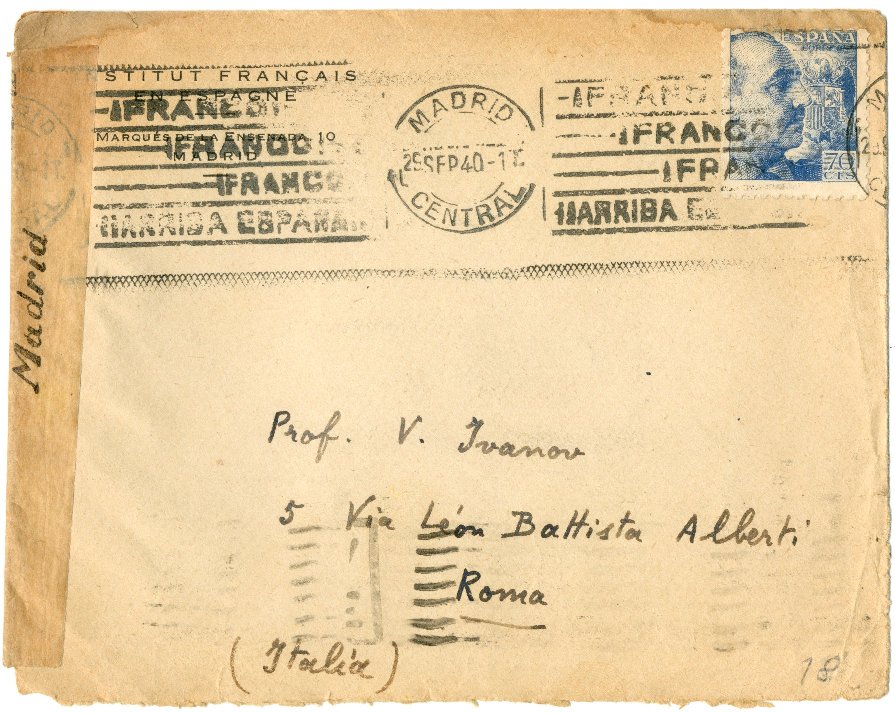 STITUT FRANÇAIS
EN ESPAGNE
MARQUÉS DE LA ENSENADA, 10
MADRID
¡FRANCO!
¡FRANCO!
¡FRANCO
¡¡ARRIBA ESPAÑA
MADRID
29 SEP 40
CENTRAL
¡FRANCO
¡FRANCO
¡FRAN
¡¡ARRIBA E
ESPAÑA
70
CTS
Madrid
Prof. V. Ivanov
5 Via Léon Battista Alberti
Roma
(Italia)
18